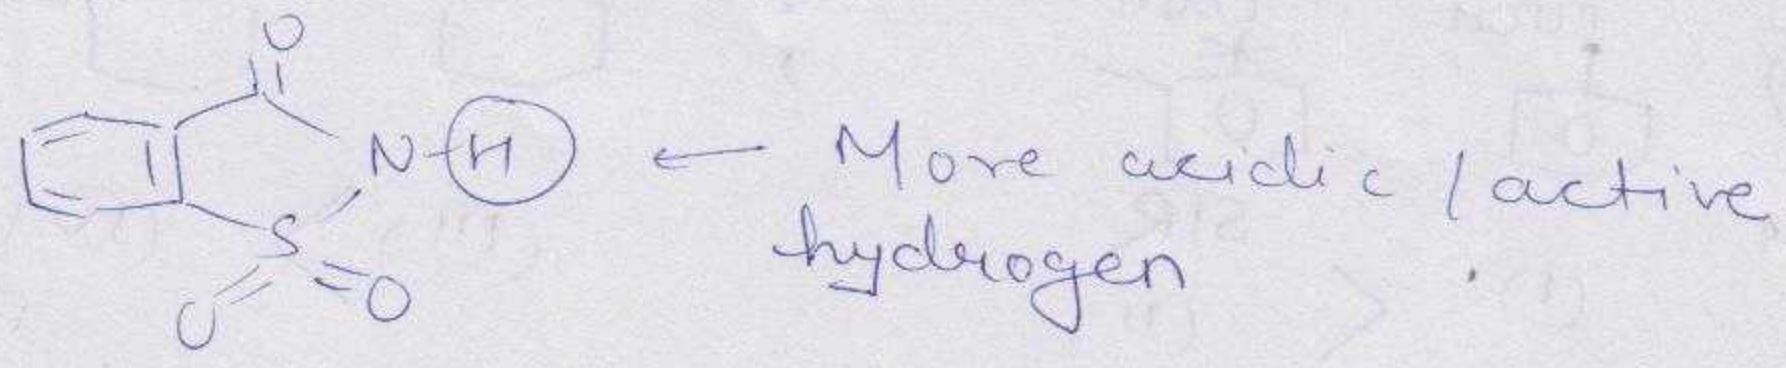 O
N-H ← More acidic / active
hydrogen
S
O O